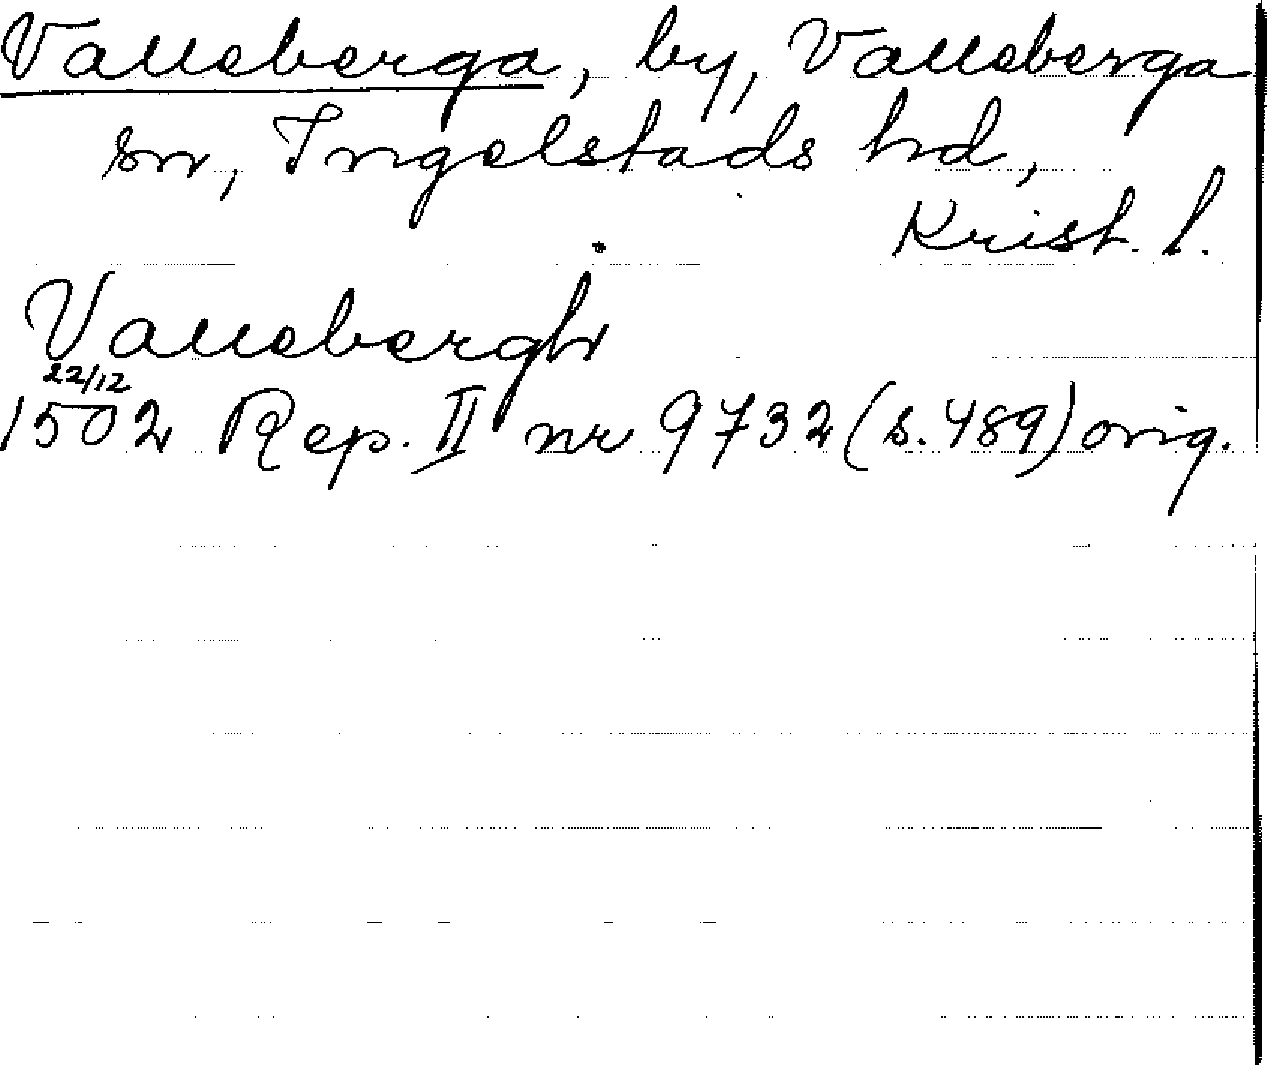 Valleberga, by, Valleberga
sn, Ingelstads hd,
Krist. l.
Vallebergh
22/12
1502 Rep. II nr 9732 (s. 489) orig.